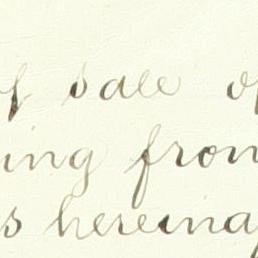 of sale of
ing from
s hereina